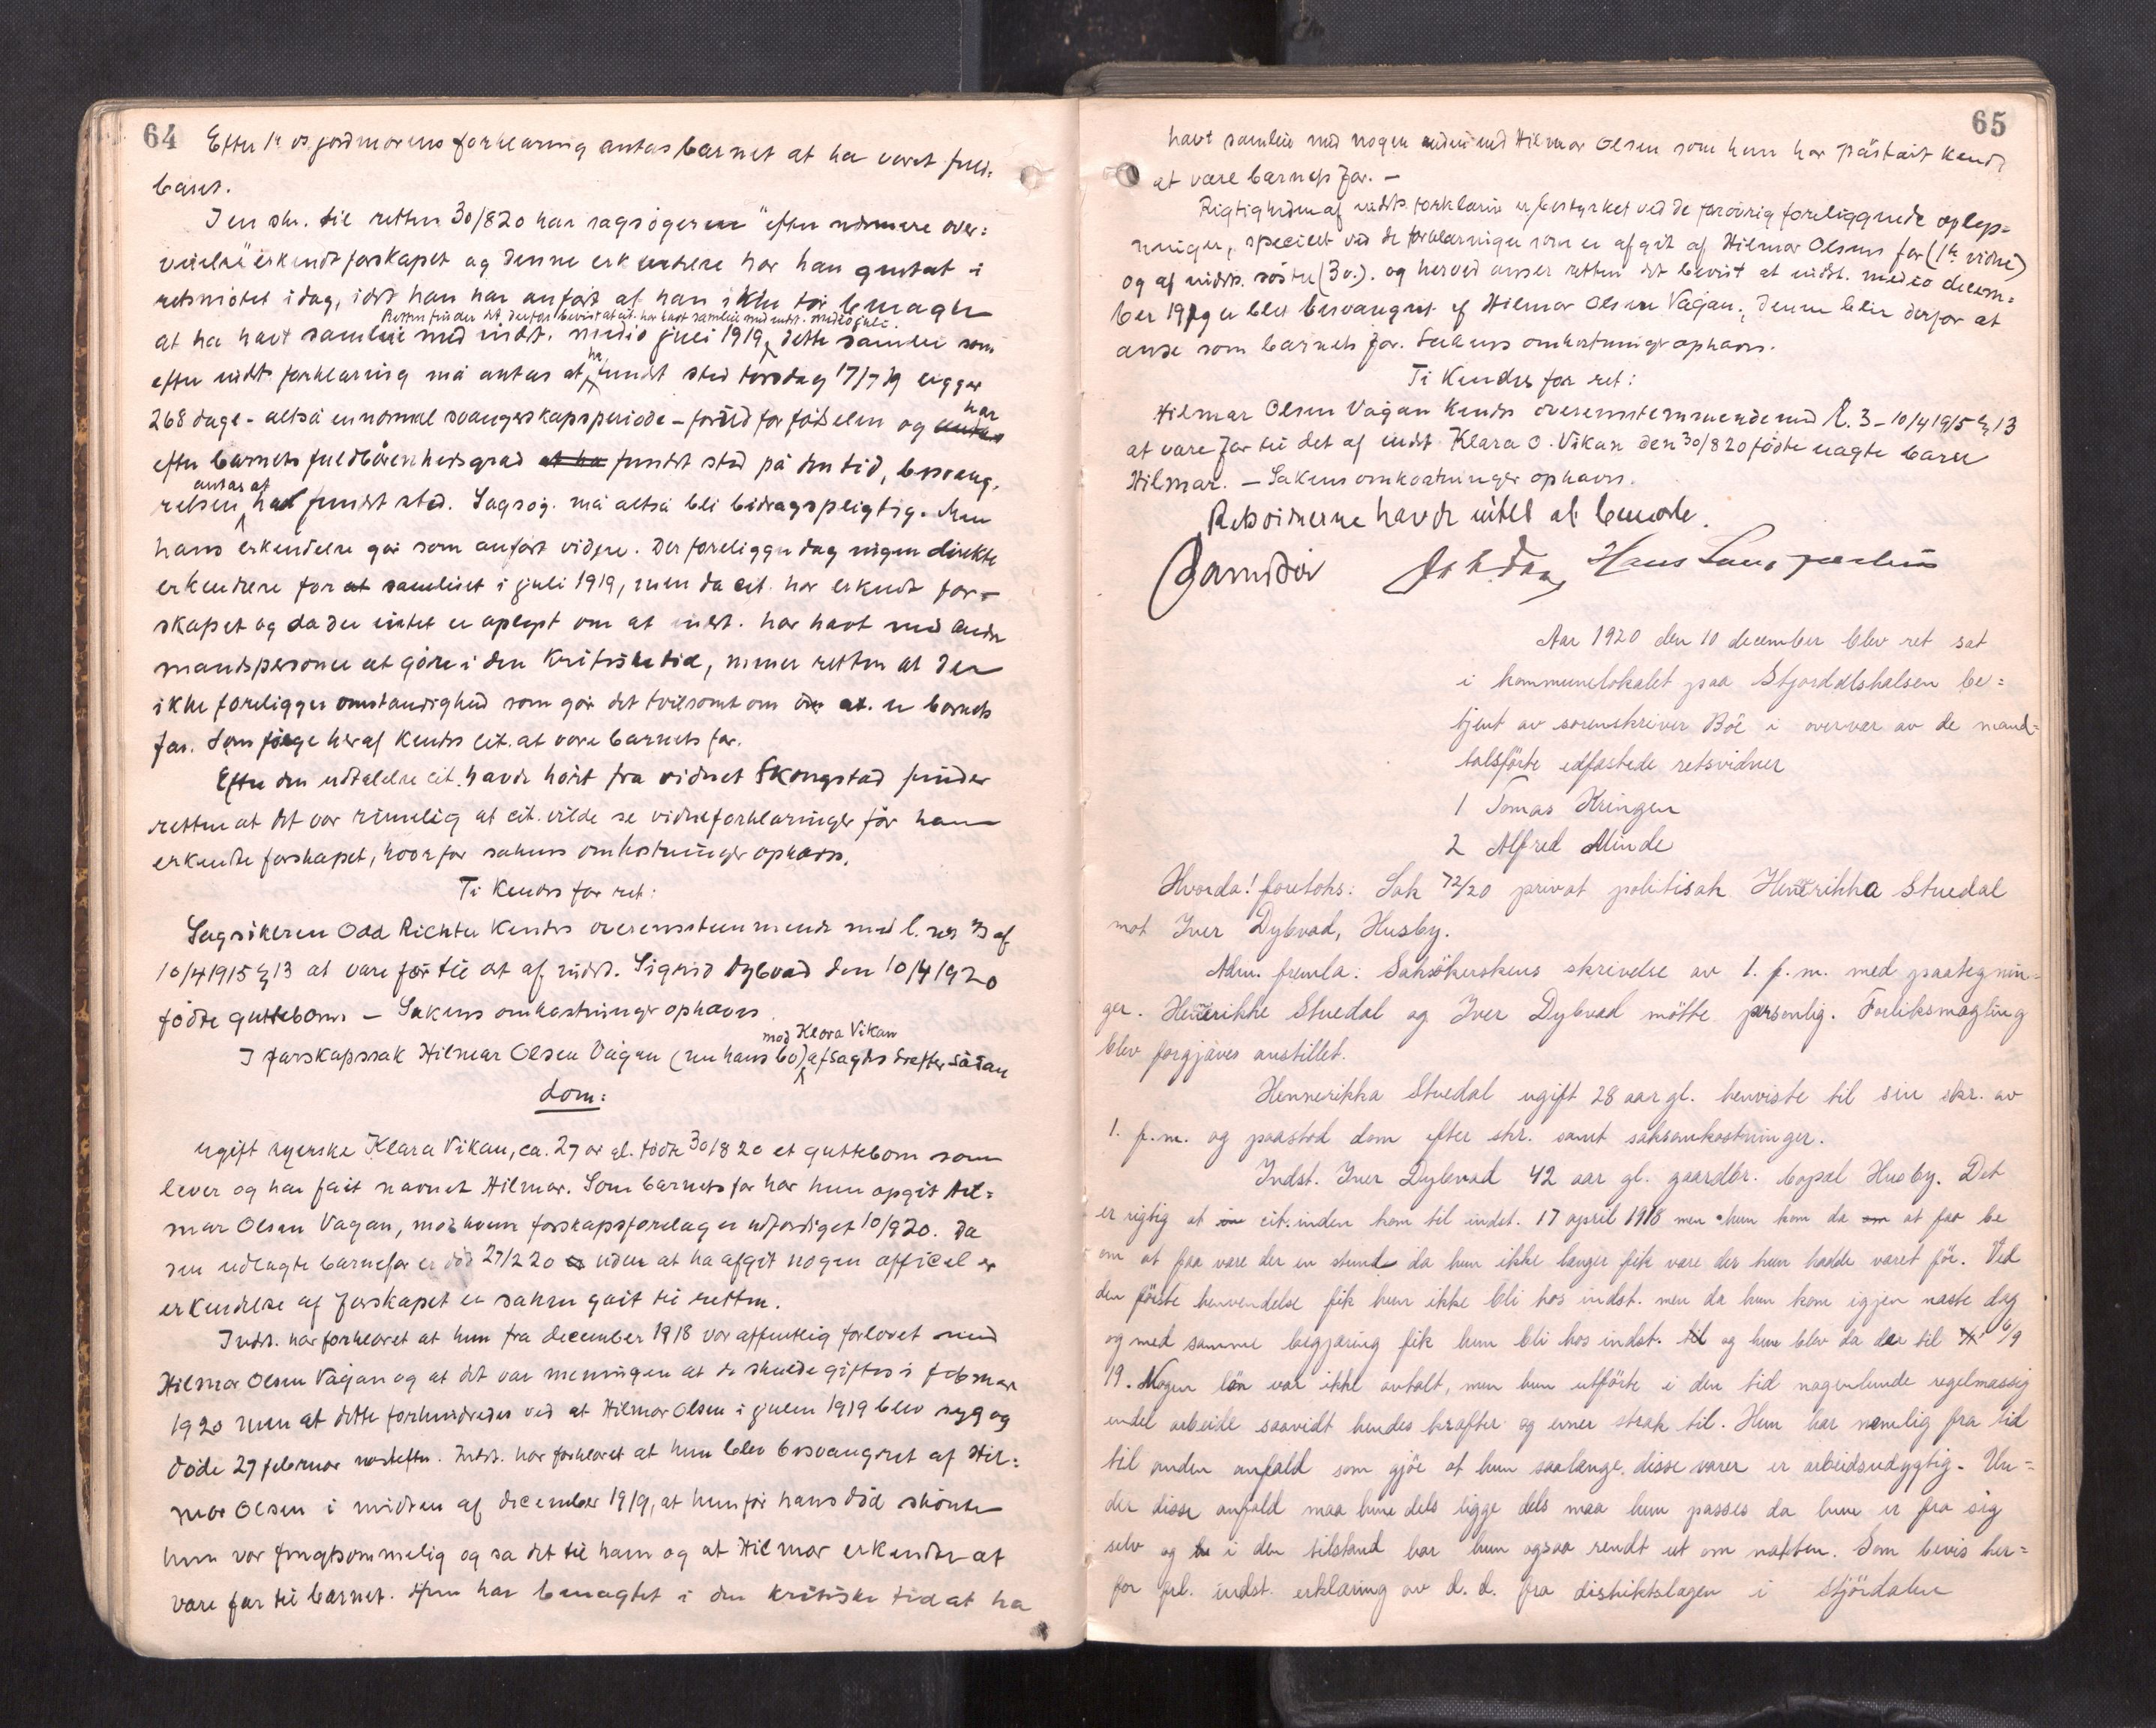 64
Efter 1ste v's jordmorens forklaring antas barnet at ha været fuld-
båret.
I en skr. til retten 30/8 20 har sagsøgeren "efter nærmere over-
veielse" erkendt farskapet og denne erkendelse har han gentat i
retsmötet idag, idet han har anfört at han ikke tör benægte
Retten finder det derfor bevist at cit. har havt samleie med indst. medio juli.
at ha havt samleie med indst. medio juli 1919, dette samleie som
efter indsts forklaring må antas at ha fundet sted torsdag 17/7 19 ligger
268 dage - altså en normal svangerskapsperiode - forud for fødselen og har
efter barnets fuldbårenhetsgrad at ha fundet sted på den tid, besvang-
relsen antas at had fundet sted. Sagsøg. må altså bli bidragspligtig. Men
hans erkendelse går som anført videre. Der foreligger dog ingen direkte
erkendelse for at samleiet i juli 1919, men da cit. har erkendt far-
skapet og da der intet er oplyst om at indst. har havt med andre
mandspersoner at göre i den kritiske tid, mener retten at der
ikke foreligger omstændighed som gör det tvilsomt om cit. er barnets
far. Som følge heraf kendes cit. at være barnets far.
Efter den udtalelse cit. havde hört fra vidnet Skongstad finder
retten at det var rimelig at cit. vilde se vidneforklaringer før han
erkendte farskapet, hvorfor sakens omkostninger ophæves.
Ti kendes for ret:
Sagsökeren Odd Richter kendes overensstemmende med l. nr 3 af
10/4 1915 § 13 at være far til det af indst. Sigrid Dybvad den 10/4 1920
födte guttebarn. - Sakens omkostninger ophæves
I farskapssak Hilmar Olsen Vågan (nu hans bo) mod Klara Vikan afsagdes derefter sådan
dom:
Ugift syerske Klara Vikan, ca. 27 år gl. födte 30/8 20 et guttebarn som
lever og har fåit navnet Hilmar. Som barnets far har hun opgit Hil-
mar Olsen Vagan, mod hvem farskapsforelæg er udfærdiget 10/9 20. Da
den udlagte barnefar er död 27/2 20 uden at ha afgit nogen officiel
erkendelse af farskapet er saken gåit til retten.
Indst. har forklaret at hun fra december 1918 var offentlig forlovet med
Hilmar Olsen Vågan og at det var meningen at de skulde giftes i februar
1920 men at dette forhindredes ved at Hilmar Olsen i julen 1919 blev syg og
döde 27 februar næstefter. Indst. har forklaret at hun blev besvangret af Hil-
mar Olsen i midten af december 1919, at hun för hans död skönte
hun var frugtsommelig og sa det til ham og at Hilmar erkendte at
være far til barnet. Hun har benægtet i den kritiske tid at ha
65
havt samleie med nogen anden end Hilmar Olsen som hun har påståit kendt
at være barnets far. -
Rigtigheden af indsts forklaring er bestyrket ved de forövrig foreliggende oplys-
ninger, specielt ved de forklaringer som er afgit af Hilmar Olsens far (1ste vidne)
og af indsts. söster (3 v.). og herved anser retten det bevist at indst. medio decem-
ber 1919 er blet besvangret af Hilmar Olsen Vågan; denne blir derfor at
anse som barnets far. Sakens omkostninger ophæves.
Ti kendes for ret:
Hilmar Olsen Vågan kendes overensstemmende med l. 3 - 10/4 1915 § 13
at være far til det af indst Klara O. Vikan den 30/8 20 födte uægte barn
Hilmar. - Sakens omkostninger ophæves.
Retsvidnerne havde intet at bemerke.
Hans
Aar 1920 den 10 december blev ret sat
i kommunelokalet paa Stjørdalshalsen be-
tjent av sorenskriver Böe i overvær av de mand-
talsförte edfæstede retsvidner
1 Tomas Kringen
2 Alfred Minde
Hvorda! foretoks: Sak 72/20 privat politisak Hennerikka Stuedal
mot Iver Dybvad, Husby.
Adm. fremla: Saksökerskens skrivelse av 1. f.m. med paategnin-
ger. Hennerikke Stuedal og Iver Dybvad mötte personlig. Forliksmægling
blev forgjæves anstillet.
Hennerikka Stuedal ugift 28 aar gl. henviste til sin skr. av
1. f.m. og paastod dom efter skr. samt saksomkostninger.
Indst. Iver Dybvad 42 aar gl. gaardbr. bopæl Husby. Det
er rigtig at cit.inden kom til indst. 17 april 1918 men hun kom da at faa be
om at faa være der en stund da hun ikke længer fik være der hun hadde været før. Ved
den förste henvendelse fik hun ikke bli hos indst. men da hun kom igjen næste dag
og med samme begjæring fik hun bli hos indst. til og hun blev da der til 6/9
19. Nogen lön var ikke avtalt, men hun utförte i den tid nogenlunde regelmæssig
endel arbeide saavidt hendes kræfter og evner strak til. Hun har nemlig fra tid
til anden anfald som gjör at hun saalænge disse varer er arbeidsudygtig. Un-
der disse anfald maa hun dels ligge dels maa hun passes da hun er fra sig
selv og i den tilstand har hun ogsaa rendt ut om natten. Som bevis her-
for frl. indst. erklæring av d. d. fra distriktslægen i Stjördalen